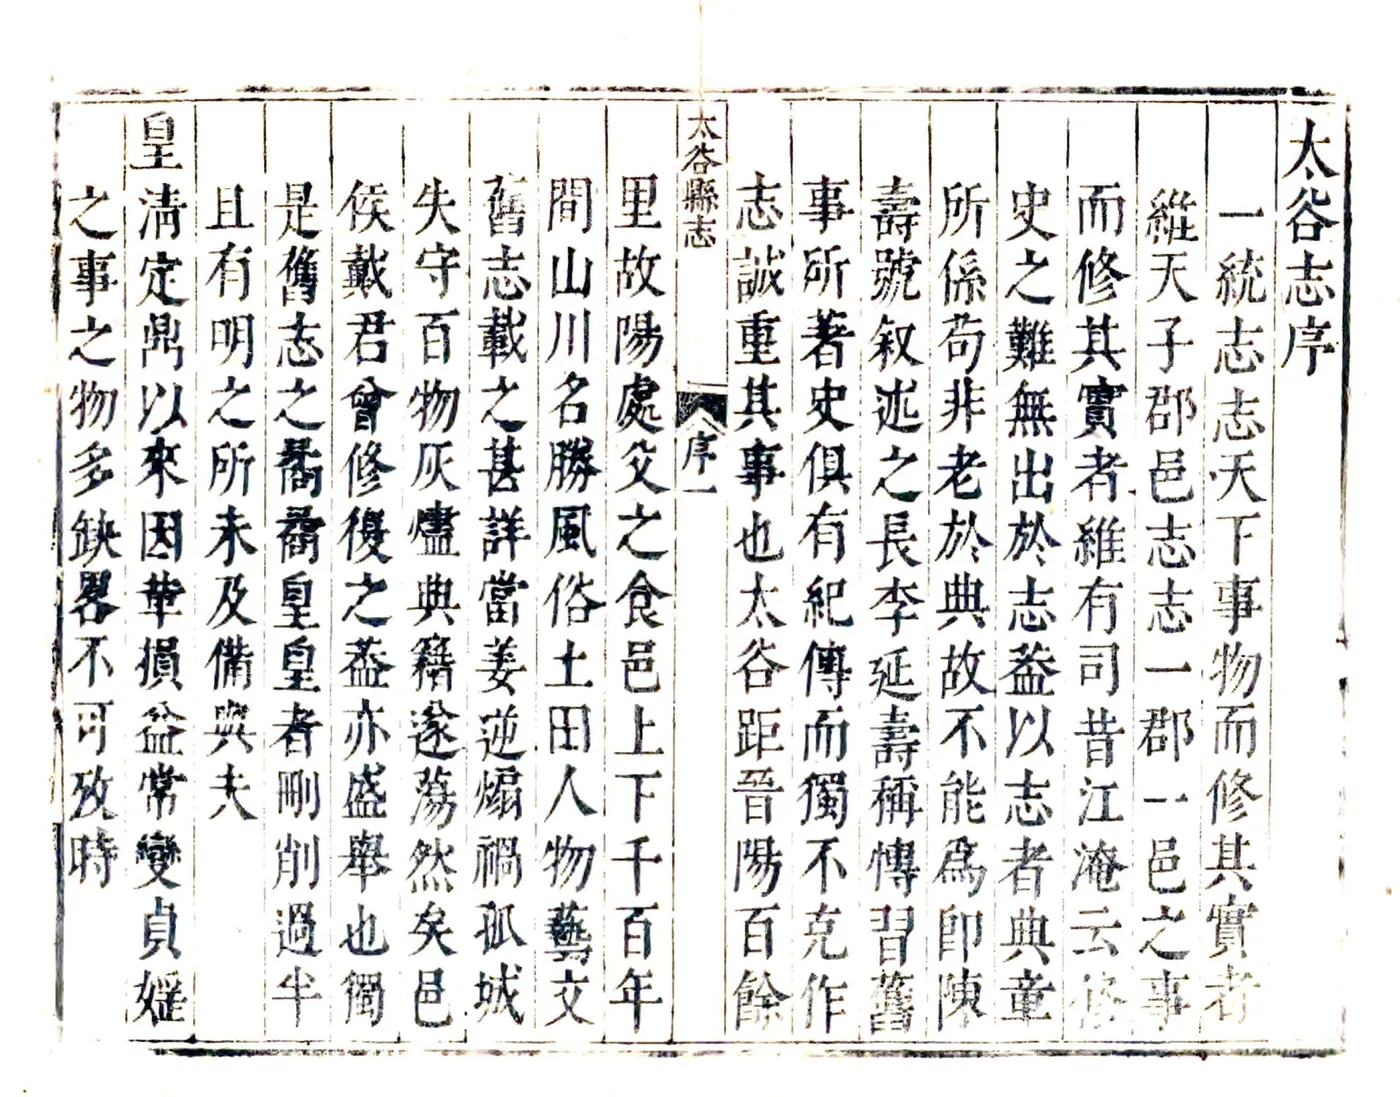 太谷志序
一統志志天下事物而修其實者
維天子郡邑志志一郡一邑之事
而修其實者維有司昔江淹云修
史之難無出於志葢以志者典章
所係茍非老於典故不能爲卽陳
壽號叙述之長李延壽稱愽習舊
事所著史俱有紀傳而獨不克作
志誠重其事也太谷距晉陽百餘
太谷縣志
序一
里故陽處父之食邑上下千百年
間山川名勝風俗土田人物藝文
舊志載之甚詳當姜逆煽禍孤城
失守百物灰燼典籍遂蕩然矣邑
侯戴君曾修復之葢亦盛舉也獨
是舊志之矞矞皇皇者刪削過半
且有明之所未及備與夫
皇清定鼎以來因革損益常變貞婬
之事之物多缺畧不可攷時